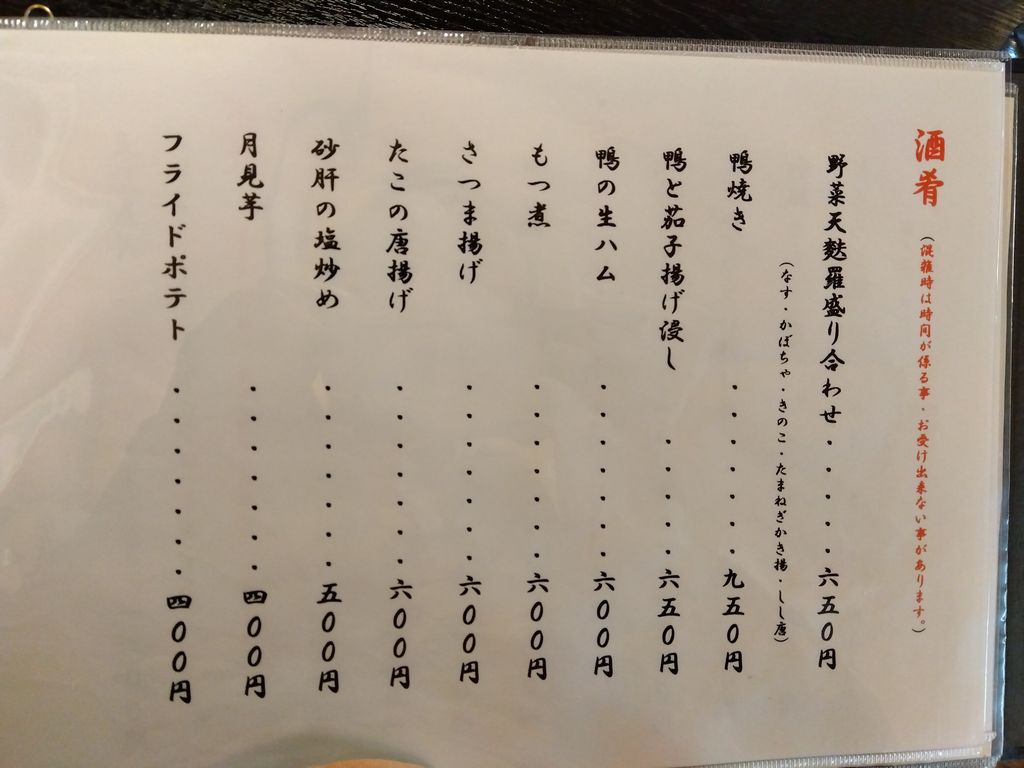 酒肴 (混雑時は時間が係る事・お受け出来ない事があります。)
野菜天麩羅盛り合わせ・・・・・六五〇円
(なす・かぼちゃ・きのこ・たまねぎかき揚・しし唐)
鴨焼き・・・・・・・九五〇円
鴨と茄子揚げ浸し・・・・・六五〇円
鴨の生ハム・・・・・・・六〇〇円
もつ煮・・・・・・・六〇〇円
さつま揚げ・・・・・・・六〇〇円
たこの唐揚げ・・・・・・・六〇〇円
砂肝の塩炒め・・・・・・・五〇〇円
月見芋・・・・・・・四〇〇円
フライドポテト・・・・・・・四〇〇円